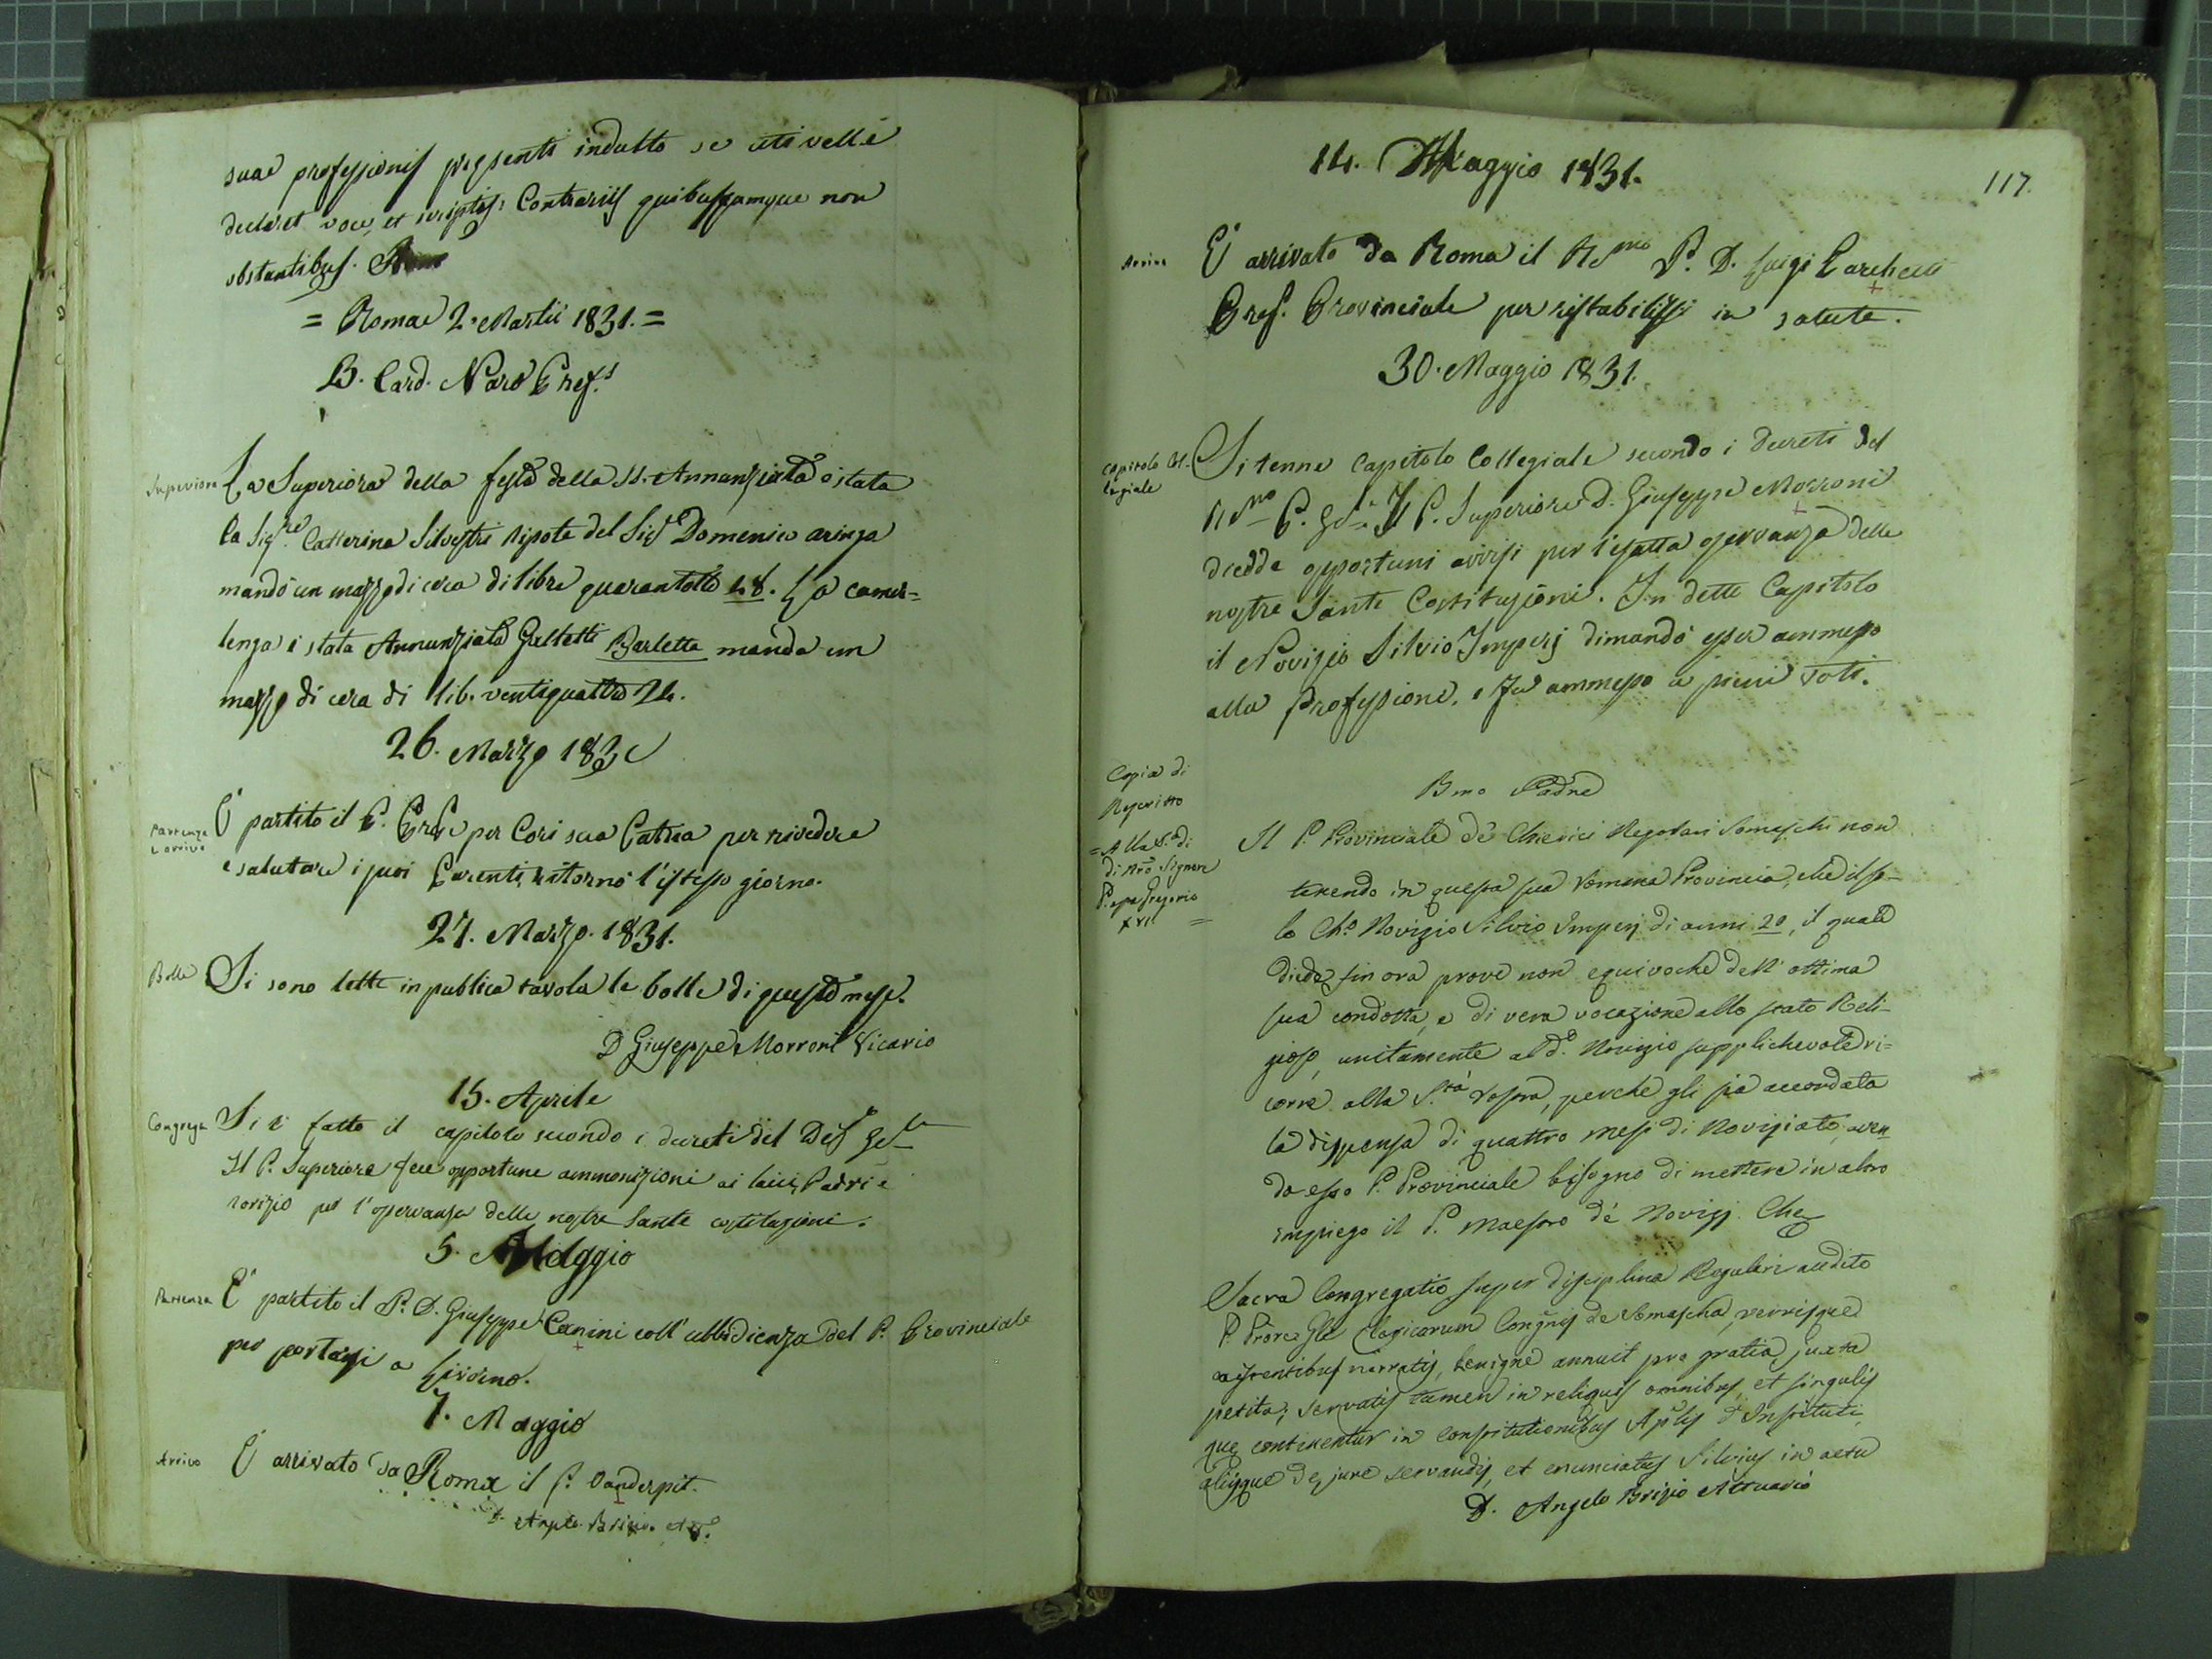 suae professionis presenti indulto se uti velle
declaret voce, et scriptis: Contrariis quibuscumque non
obstantibus.
= Romae 2. Martii 1831. =
B. Card. Naro Pref.s
Superiora
La Superiora della festa della SS. Annunziata è stata
la Sig.re Catterina Silvestri Nipote del Sig.r Domenico
mandò un mazzo di cera di libre quarantotto 48. La camer=
lenga è stata Annunziata Galtelli Barletta manda un
mazzo di cera di lib. ventiquattro 24.
26. Marzo 1831
Partenza
e arrivo
È partito il P. per Cori sua Patria per rivedere
e salutare i suoi Parenti, ritornò l'istesso giorno.
27. Marzo. 1831.
Bolle
Si sono lette in publica tavola le bolle di questo mese.
D Giuseppe Morroni Vicario
15. Aprile
Congrega
Si è fatto il capitolo secondo i decreti del Def Gele
Il P. Superiore fece opportune ammonizioni ai laici, Padri e
novizio per l'osservanza delle nostre Sante costituzioni.
5. Maggio
Partenza
È partito il P. D. Giuseppe Canini coll' ubbidienza del P. Provinciale
per portarsi a Livorno.
7. Maggio
Arrivo
È arrivato da Roma il P. Vanderpit.
D. Angelo Brizio. Att.o
117.
14. Maggio 1831.
Arrivo
È arrivato da Roma il Rd.mo P. D. Luigi
Pref. Provinciale per ristabilissi in salute.
30. Maggio 1831.
Capitolo Col-
legiale
Si tenne Capitolo Collegiale secondo i decreti del
R.mo P. Gele. Il P. Superiore D. Giuseppe Morroni
diedde opportuni avvisi per l'esatta osservanza delle
nostre Sante Costituzioni. In dette Capitolo
il Novizio Silvio Imperj dimandò esser ammesso
alla Professione, e fu ammesso a pieni voti.
Copia di
Rescritto
= Alla S.tà di
di Nro Signore
Papa Gregorio
XVI =
Bmo Padre
Il P. Provinciale de' Chierici Regolari Somaschi non
tenendo in questa sua Romana Provincia, che il so-
lo Ch.o Novizio Silvio Imperj di anni 20, il quale
diede fin ora prove non equivoche dell' ottima
sua condotta, e di vera vocazione allo stato Reli-
gioso, unitamente al d.o Novizio supplichevole ri=
corre alla S.tà Vostra, perche gli sia accordata
la dispensa di quattro mesi di Novizziato, aven
do esso P. Provinciale bisogno di mettere in altro
impiego il P. Maestro de' Novizj. Che
Sacra Congregatio super disciplina Regulari audito
P. Prōre Gle Clericarum Congñis de Somascha, verisque
existentibus narratis, benigne annuit pro gratia juxta
petita; servatis tamen in reliquis omnibus, et singulis
que continentur in Constitutionibus Aplis et Instituti,
aliisque de jure servandis, et enunciatus Silvius in actu
D. Angelo Brizio Attuario